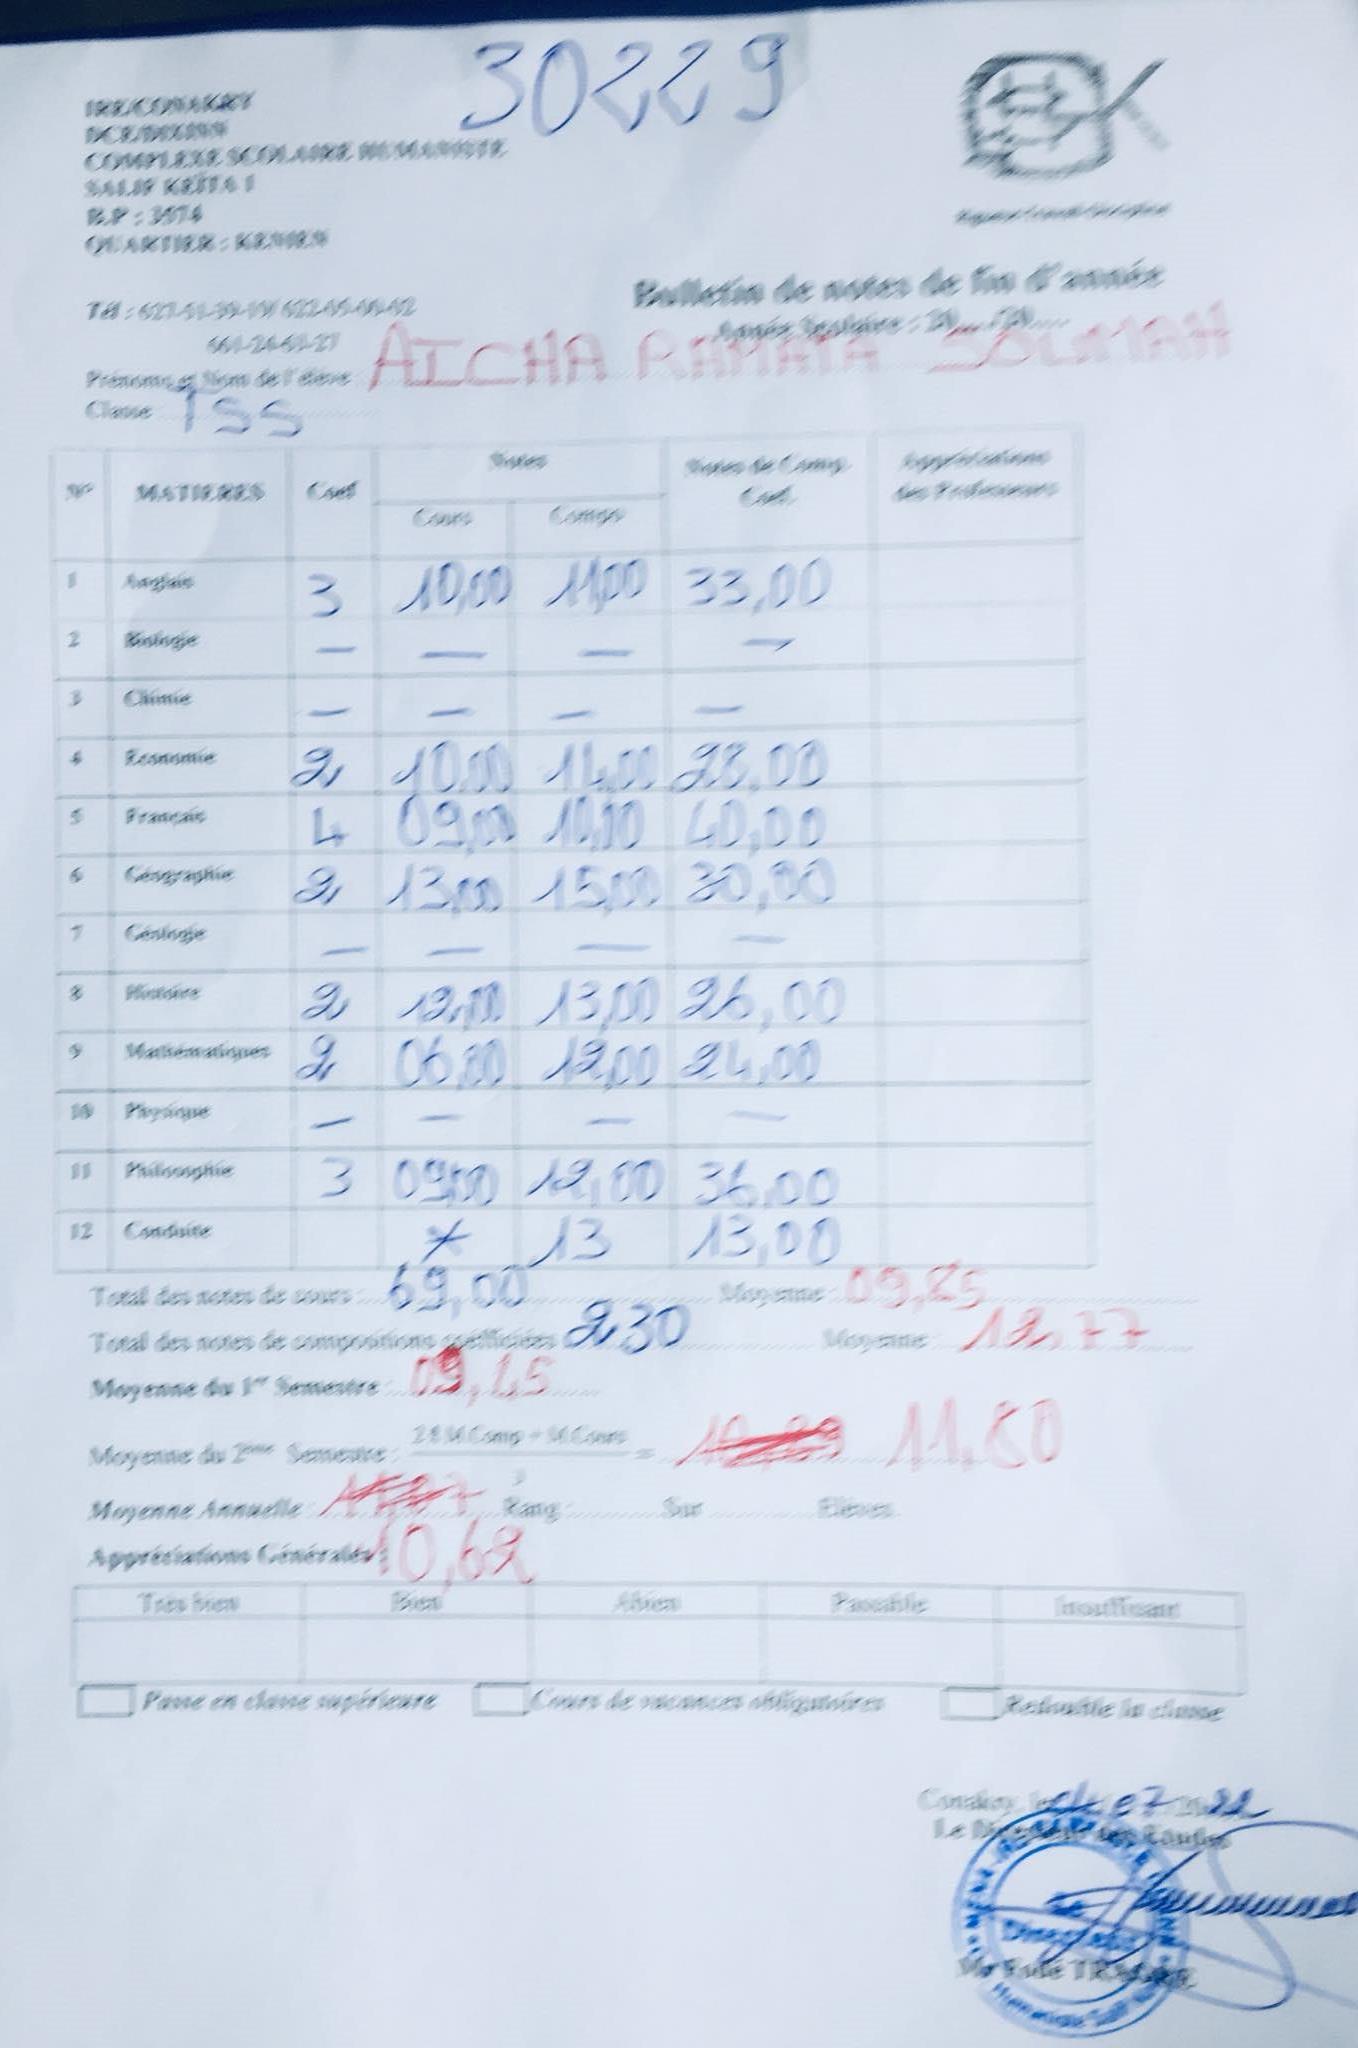 30229
IRE/CONAKRY
DCE/DIXINN
COMPLEXE SCOLAIRE HUMANISTE
SALIF KEÏTA 1
B.P : 3974
QUARTIER : KENIEN
Bulletin de notes de fin d'année
Année Scolaire : 20 /20
Tél :
661-24-61-27
Prénoms et Nom de l'élève : AICHA RAMATA SOUMAH
Classe TSS
N° MATIERES Coef Notes Notes de Comp. Coef. Appréciations des Professeurs
Cours Compo
1 Anglais 3 10,00 11,00 33,00
2 Biologie — — — —
3 Chimie — — — —
4 Economie 2 10,00 14,00 28,00
5 Français 4 09,00 10,00 40,00
6 Géographie 2 13,00 15,00 30,00
7 Géologie — — — —
8 Histoire 2 12,00 13,00 26,00
9 Mathématiques 2 06,00 12,00 24,00
10 Physique — — — —
11 Philosophie 3 09,00 12,00 36,00
12 Conduite * 13 13,00
Total des notes de cours : 69,00 Moyenne : 09,85
Total des notes de compositions coefficiées 230 Moyenne : 12,77
Moyenne du 1er Semestre :
Moyenne du 2ème Semestre : 2 X M Comp + M Cours / 3 = 11,80
Moyenne Annuelle : Rang : Sur Elèves
Appréciations Générales : 10,62
Très bien Bien Abien Passable Insuffisant
Passe en classe supérieure Cours de vacances obligatoires Redouble la classe
Conakry, le 07 2022
Le Directeur des Etudes
Le
Directeur
Mr Fodé TRAORE